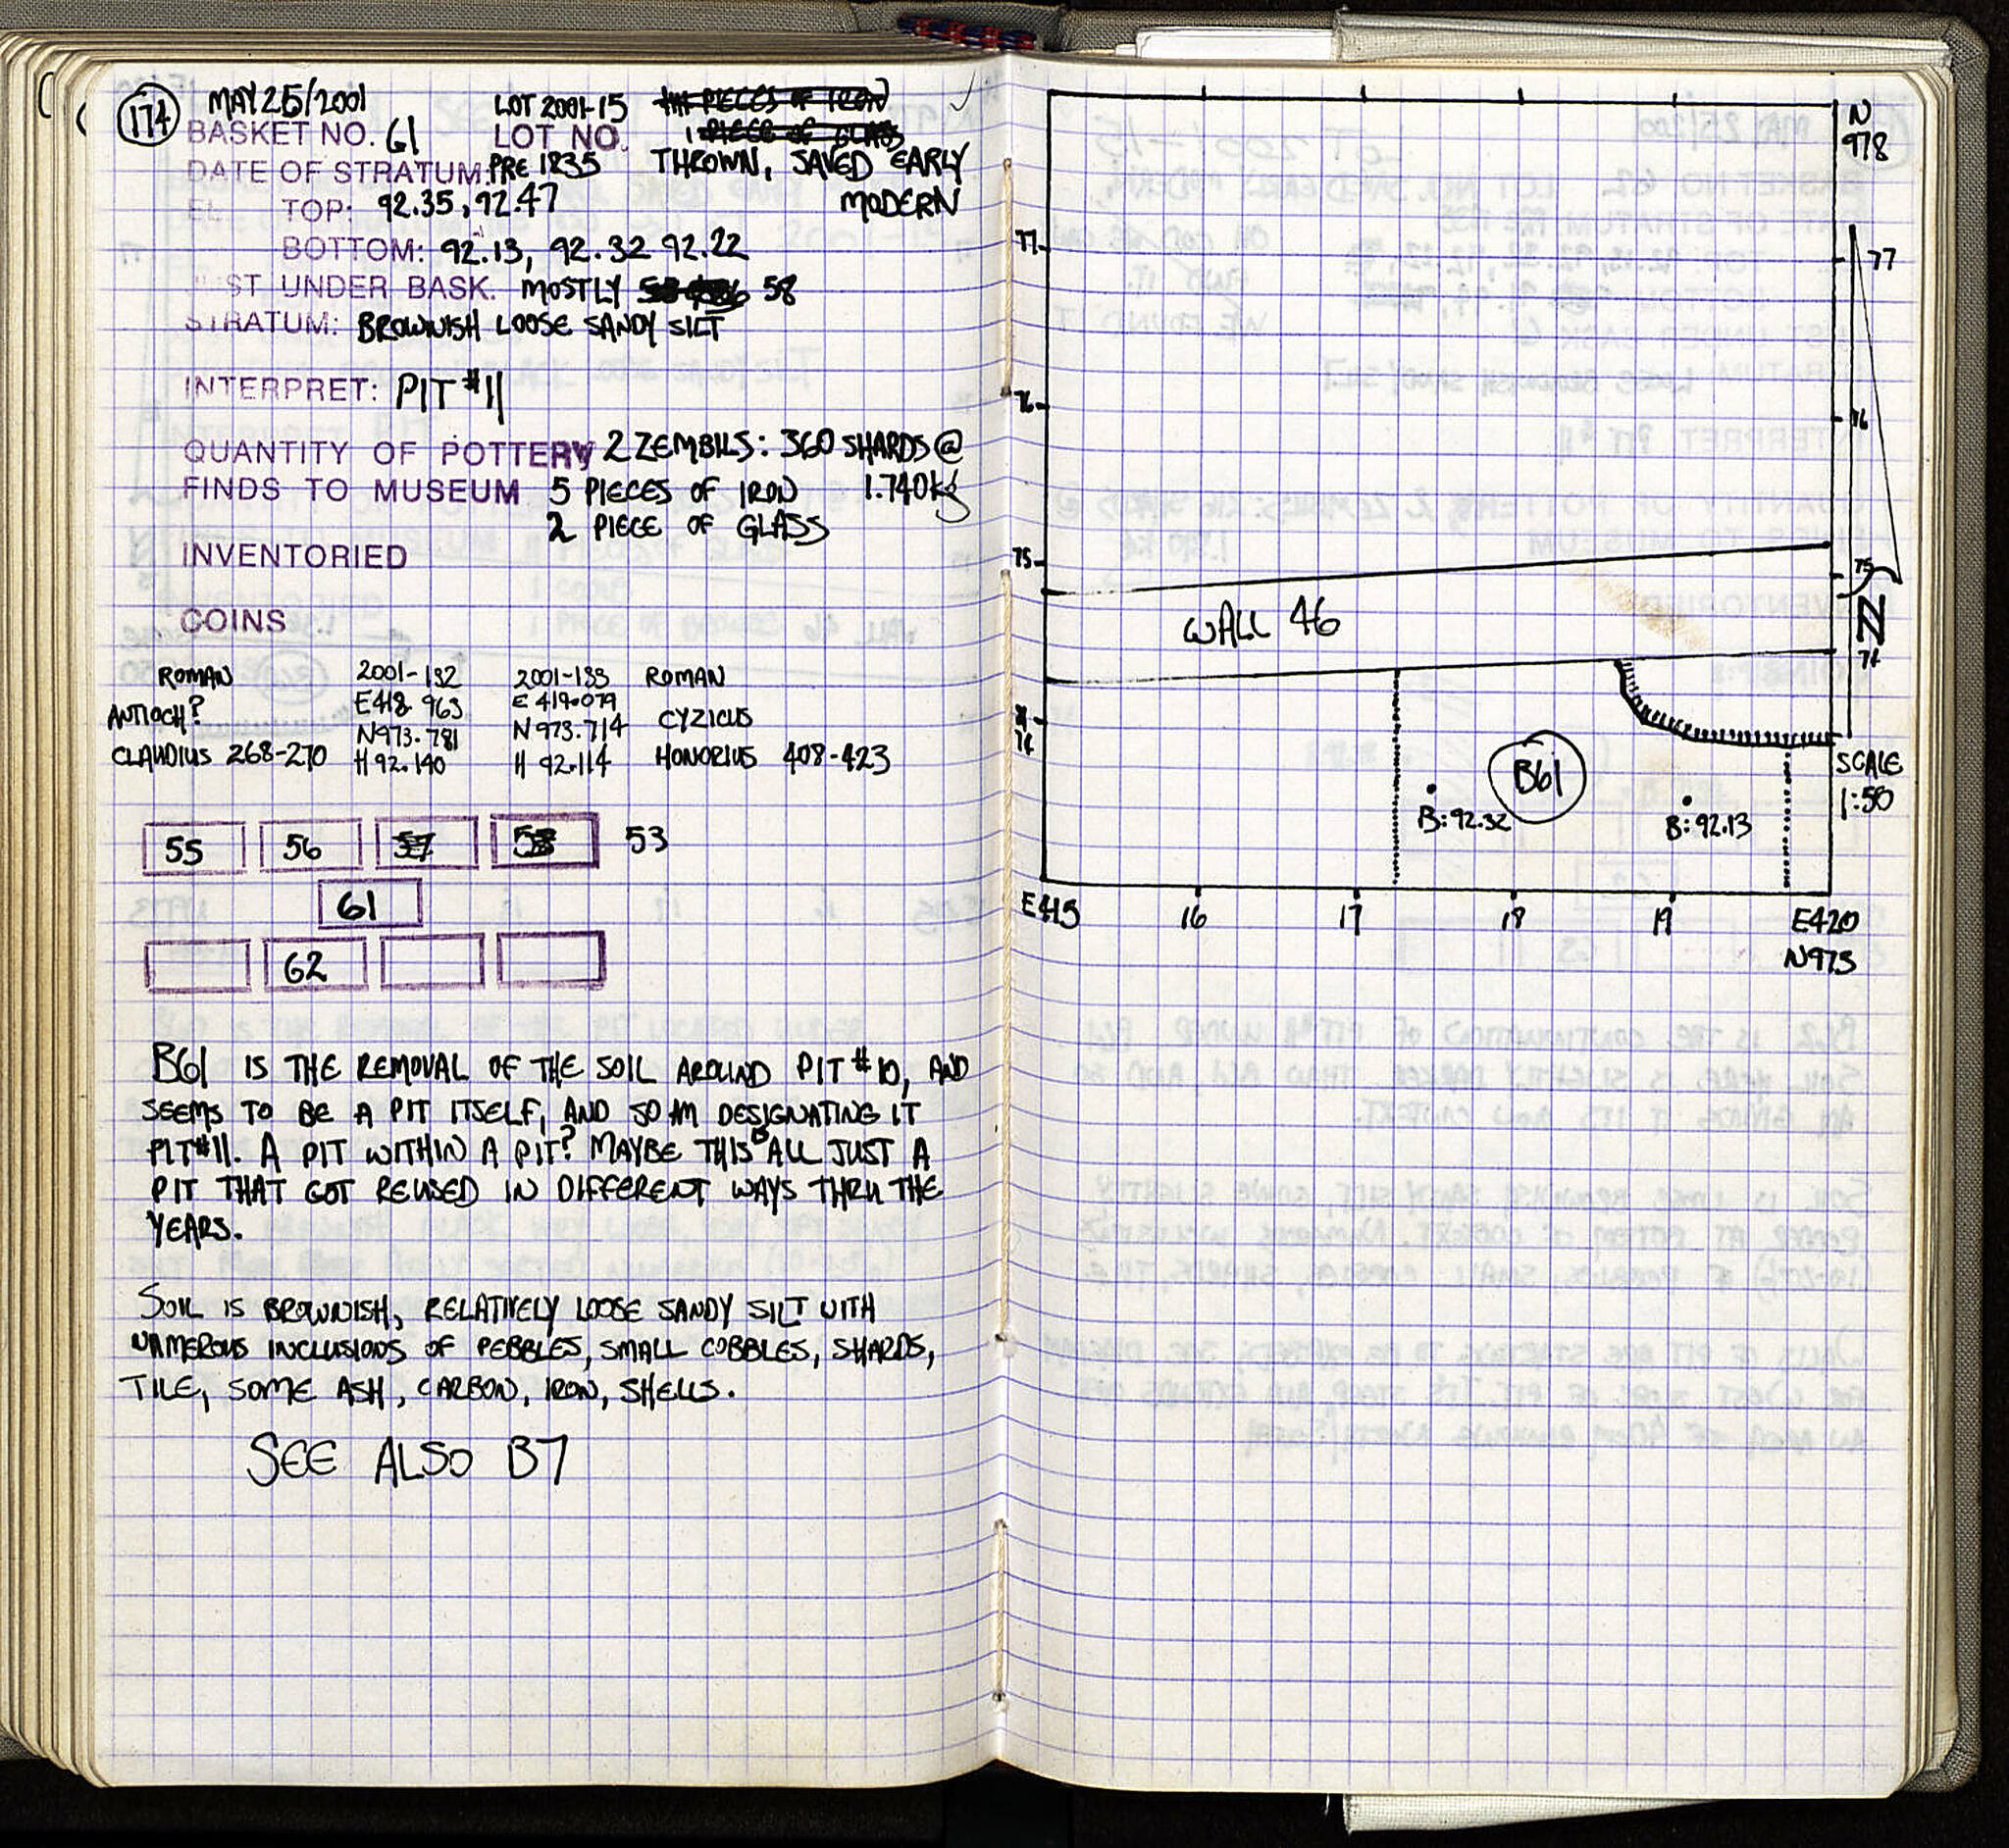 174 MAY 25/2001 LOT 2001-15
BASKET NO. 61 LOT NO.
DATE OF STRATUM: PRE 1835 THROWN, SAVED EARLY
MODERN
EL. TOP: 92.35, 92.47
BOTTOM: 92.13, 92.32 92.22
ST UNDER BASK. MOSTLY 58
STRATUM: BROWNISH LOOSE SANDY SILT
INTERPRET: PIT #11
QUANTITY OF POTTERY 2 ZEMBILS: 360 SHARDS @
1.740kg
FINDS TO MUSEUM 5 PIECES OF IRON
2 PIECE OF GLASS
INVENTORIED
COINS
ROMAN 2001-132 2001-133 ROMAN
ANTIOCH? E418.963 E419.079 CYZICUS
N973.781 N973.714
CLAUDIUS 268-270 H92.140 H 92.114 HONORIUS 408-423
55 56 57 53
61
62
B61 IS THE REMOVAL OF THE SOIL AROUND PIT #10, AND
SEEMS TO BE A PIT ITSELF, AND SO AM DESIGNATING IT
PIT#11. A PIT WITHIN A PIT? MAYBE THIS IS ALL JUST A
PIT THAT GOT REUSED IN DIFFERENT WAYS THRU THE
YEARS.
SOIL IS BROWNISH, RELATIVELY LOOSE SANDY SILT WITH
NUMEROUS INCLUSIONS OF PEBBLES, SMALL COBBLES, SHARDS,
TILE, SOME ASH, CARBON, IRON, SHELLS.
SEE ALSO B7
N
978
77 77
76 76
75 75
N
WALL 46
74
74
B61
B: 92.32
B: 92.13
SCALE
1:50
E415 16 17 18 19 E420
N973